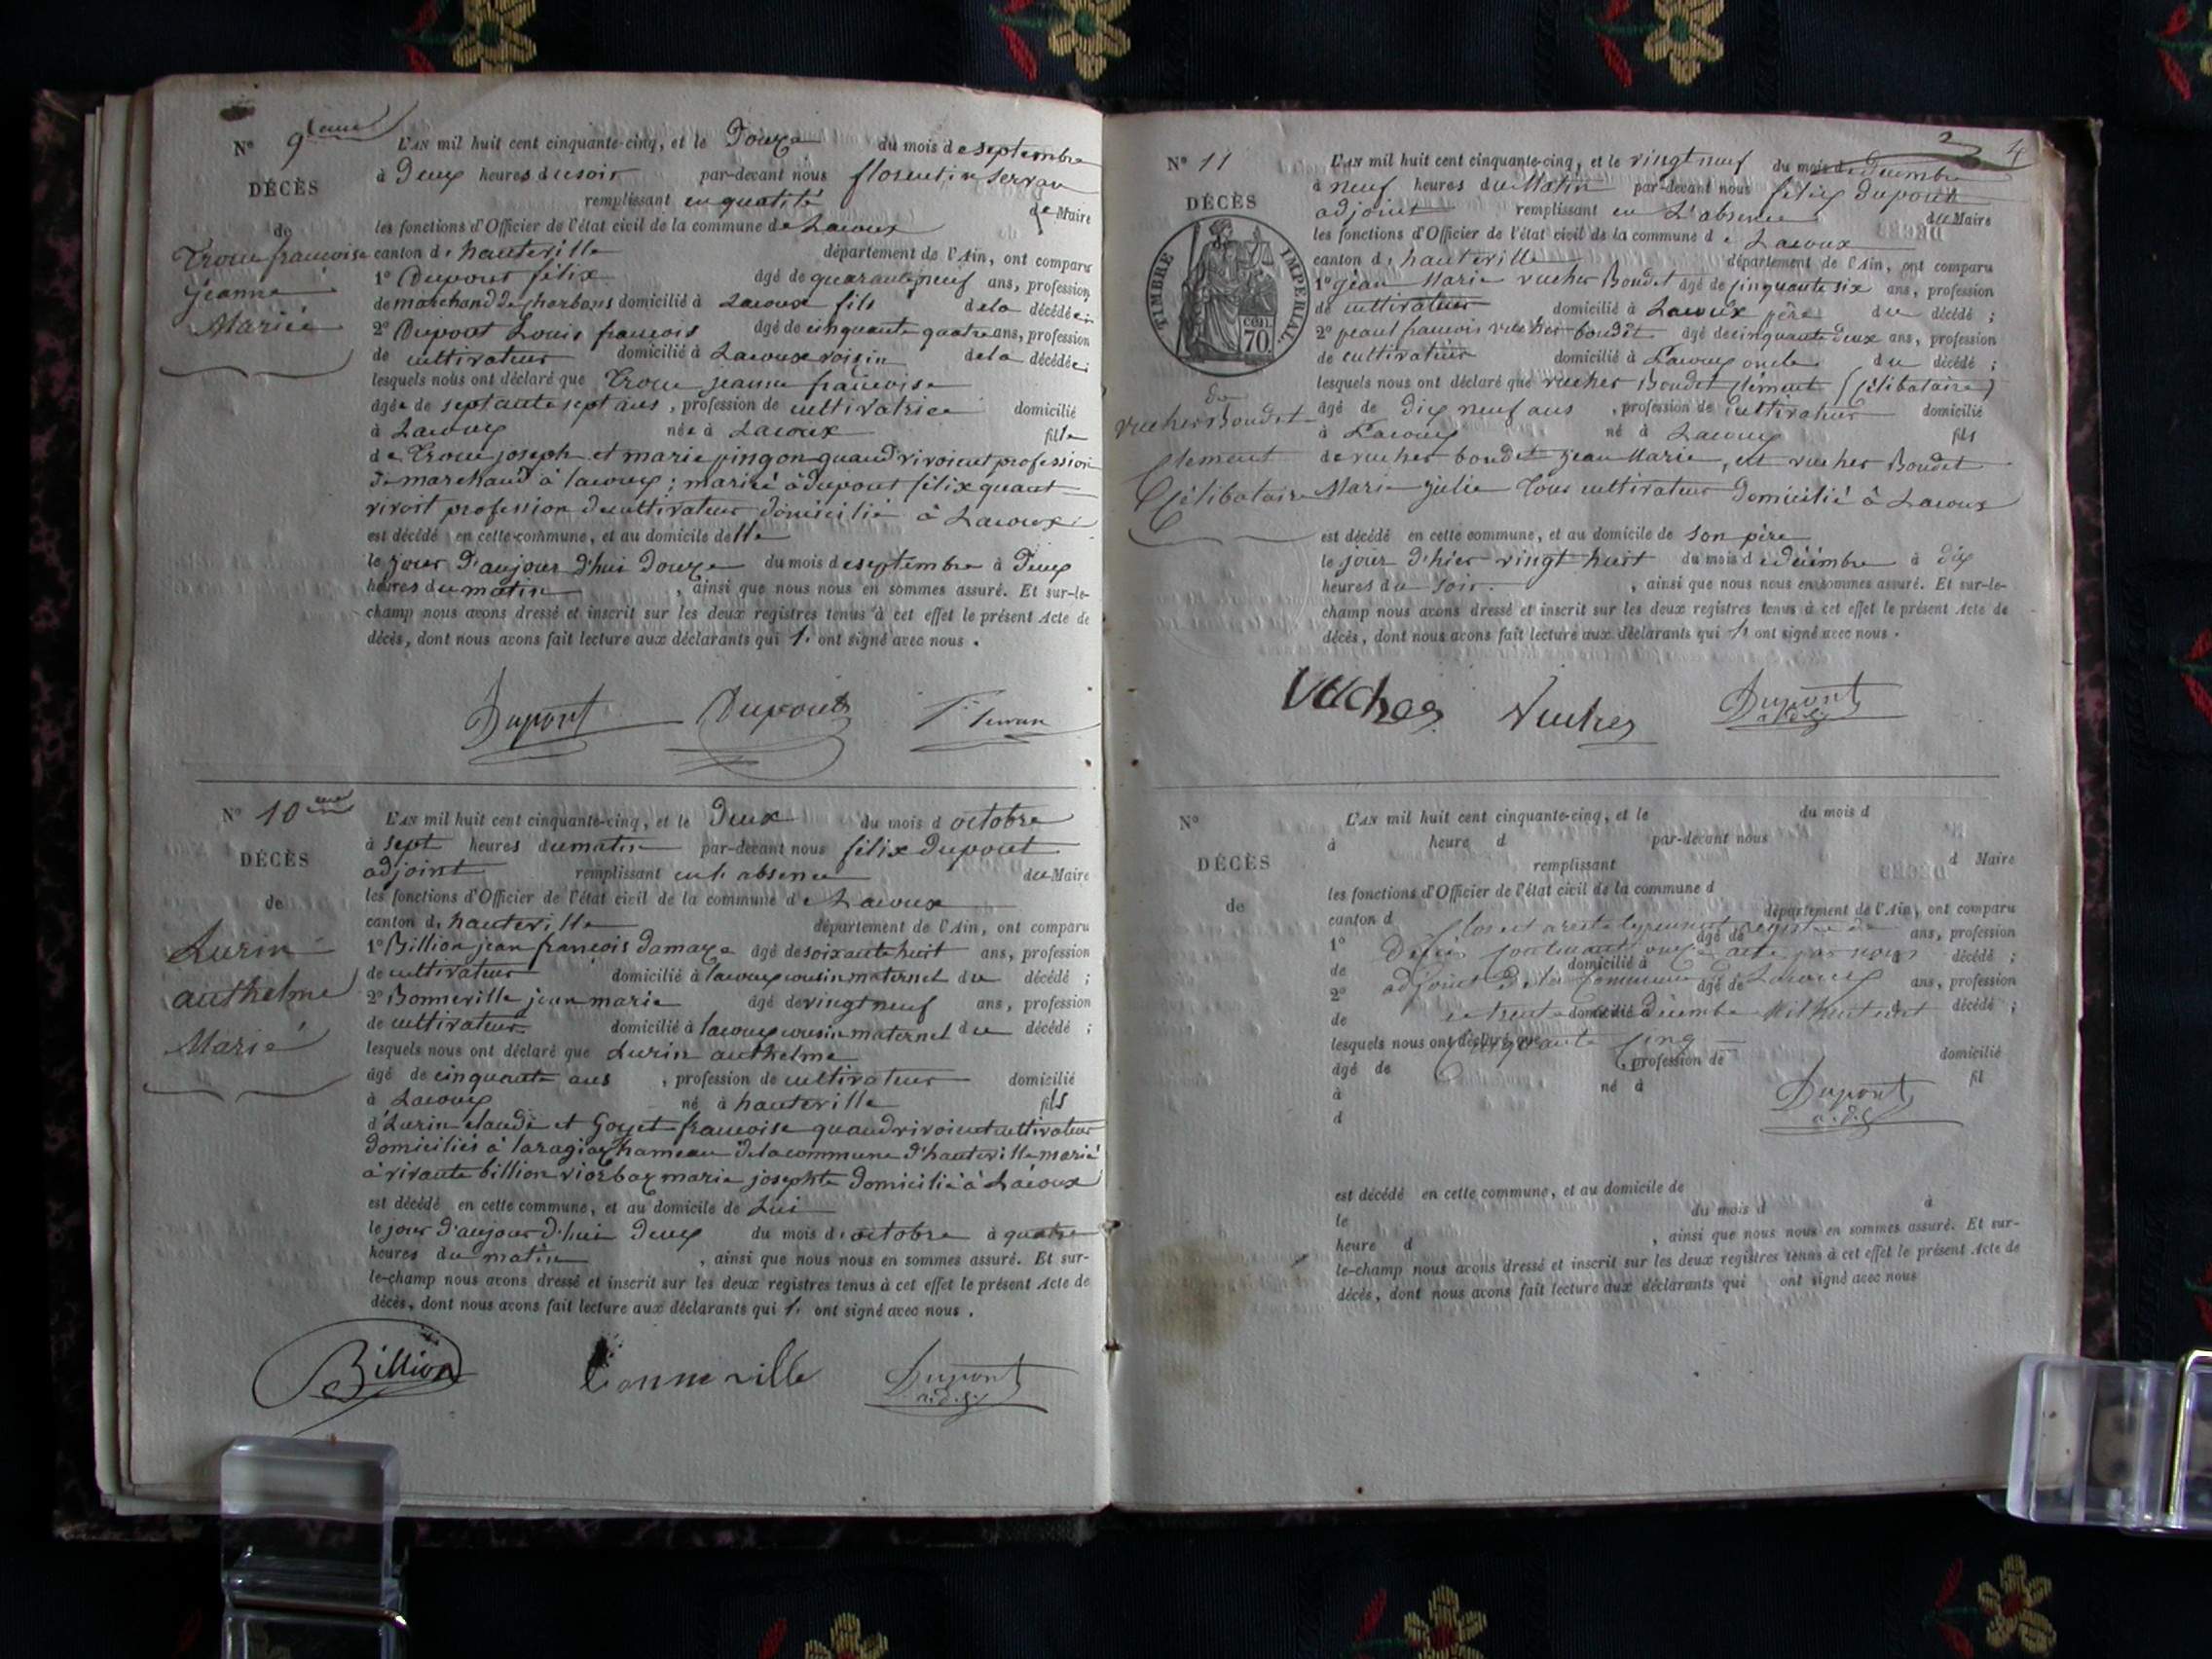 N° 9eme
DÉCÈS
de
Trocu francoise
jeanne
Mariée
L'AN mil huit cent cinquante-cinq, et le Douze du mois de septembre
à Deux heures du soir par-devant nous florentin Servan
remplissant en qualité de Maire
les fonctions d'Officier de l'état civil de la commune de Lacoux
canton de hauteville département de l'Ain, ont comparu
1° Dupont félix âgé de quarante neuf ans, profession
de marchand de charbons domicilié à Lacoux fils de la décédée;
2° Dupont Louis francois âgé de cinquante quatre ans, profession
de cultivateur domicilié à Lacoux voisin de la décédée;
lesquels nous ont déclaré que Trocu jeanne francoise
âgée de septante sept ans, profession de cultivatrice domicilié
à Lacoux née à Lacoux fille
de Trocu joseph et marie pingon quand vivoient profession
de marchand à lacoux; mariée à dupont félix quant
vivoit profession de cultivateur domicilié à Lacoux
est décédé en cette commune, et au domicile d'elle
le jour d'aujour d'hui douze du mois de septembre à Deux
heures du matin, ainsi que nous nous en sommes assuré. Et sur-le-
champ nous avons dressé et inscrit sur les deux registres tenus à cet effet le présent Acte de
décès, dont nous avons fait lecture aux déclarants qui l'ont signé avec nous.
Dupont Dupont f. Servan
N° 10eme
DÉCÈS
de
Lurin
anthelme
Marié
L'AN mil huit cent cinquante-cinq, et le Deux du mois d octobre
à sept heures du matin par-devant nous félix Dupont
adjoint remplissant en l'absence du Maire
les fonctions d'Officier de l'état civil de la commune de Lacoux
canton de hauteville département de l'Ain, ont comparu
1° Billion jean françois damaze âgé de soixante huit ans, profession
de cultivateur domicilié à lacoux cousin maternel du décédé;
2° Bonneville jean marie âgé de vingt neuf ans, profession
de cultivateur domicilié à lacoux cousin maternel du décédé;
lesquels nous ont déclaré que Lurin anthelme
âgé de cinquante ans, profession de cultivateur domicilié
à Lacoux né à hauteville fils
d'Lurin claude et Goyet francoise quand vivoient cultivateur
domiciliés à hameau de la commune d'hauteville marié
à vivante billion marie josephte domicilié à Lacoux
est décédé en cette commune, et au domicile de Lui
le jour d'aujour d'hui Deux du mois d'octobre à quatre
heures du matin, ainsi que nous nous en sommes assuré. Et sur-
le-champ nous avons dressé et inscrit sur les deux registres tenus à cet effet le présent Acte de
décès, dont nous avons fait lecture aux déclarants qui l'ont signé avec nous.
Billion bonneville Dupont
a.d.j
4
N° 11
DÉCÈS
TIMBRE IMPÉRIAL
70 cen.
de
vucher Boudet
Clément
Célibataire
L'AN mil huit cent cinquante-cinq, et le vingt neuf du mois de Décembre
à neuf heures du Matin par-devant nous félix Dupont
adjoint remplissant en L'absence du Maire
les fonctions d'Officier de l'état civil de la commune de Lacoux
canton de hauteville département de l'Ain, ont comparu
1° jean Marie vucher Boudet âgé de cinquante six ans, profession
de cultivateur domicilié à Lacoux père du décédé;
2° francois vucher boudet âgé de cinquante deux ans, profession
de cultivateur domicilié à Lacoux oncle du décédé;
lesquels nous ont déclaré que vucher Boudet clément (célibataire)
âgé de Dix neuf ans, profession de Cultivateur domicilié
à Lacoux né à Lacoux fils
de vucher boudet jean Marie, et vucher Boudet
Marie julie tous cultivateur domicilié à Lacoux
est décédé en cette commune, et au domicile de son père
le jour d'hier vingt huit du mois de décembre à dix
heures du soir, ainsi que nous nous en sommes assuré. Et sur-le-
champ nous avons dressé et inscrit sur les deux registres tenus à cet effet le présent Acte de
décès, dont nous avons fait lecture aux déclarants qui l'ont signé avec nous.
Vucher Vucher Dupont
N°
DÉCÈS
de
L'AN mil huit cent cinquante-cinq, et le du mois d
à heure d par-devant nous
remplissant d Maire
les fonctions d'Officier de l'état civil de la commune d
canton d département de l'Ain, ont comparu
Clos et areté le présent registre de
1° âgé de ans, profession
Décès contenant onze acte par nous
de domicilié à décédé;
adjoint De la Commune de Lacoux
2° âgé de ans, profession
le trente Décembre Mil huit cent
de domicilié à décédé;
cinquante Cinq
lesquels nous ont déclaré que
âgé de profession de domicilié
à né à fil
d
Dupont
a.d.j
est décédé en cette commune, et au domicile de
le du mois d à
heure d, ainsi que nous nous en sommes assuré. Et sur-
le-champ nous avons dressé et inscrit sur les deux registres tenus à cet effet le présent Acte de
décès, dont nous avons fait lecture aux déclarants qui ont signé avec nous